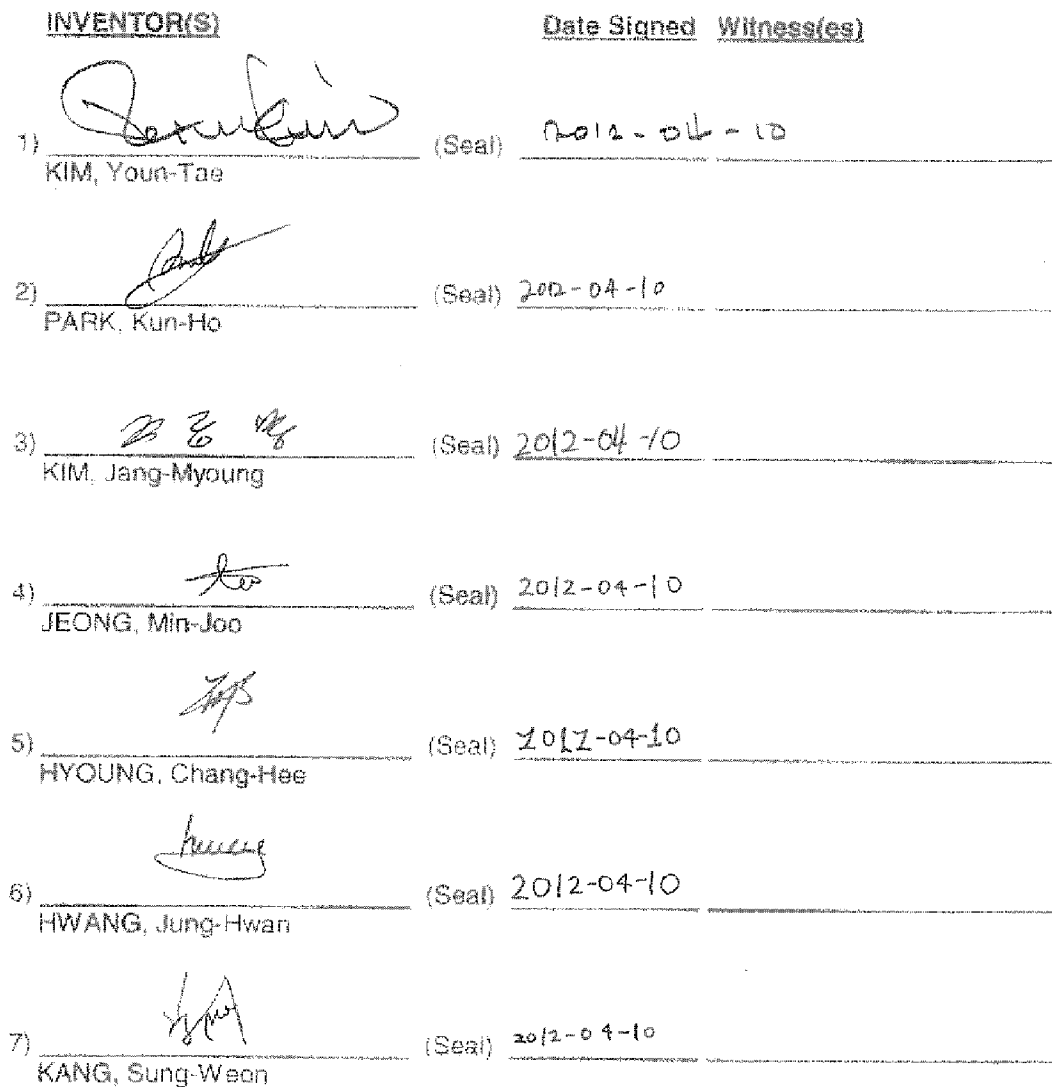 INVENTOR(S) Date Signed Witness(es)
1) (Seal) 2012-04-10
KIM, Youn-Tae
2) (Seal) 2012-04-10
PARK, Kun-Ho
3) (Seal) 2012-04-10
KIM, Jang-Myoung
4) (Seal) 2012-04-10
JEONG, Min-Joo
5) (Seal) 2012-04-10
HYOUNG, Chang-Hee
6) (Seal) 2012-04-10
HWANG, Jung-Hwan
7) (Seal) 2012-04-10
KANG, Sung-Weon